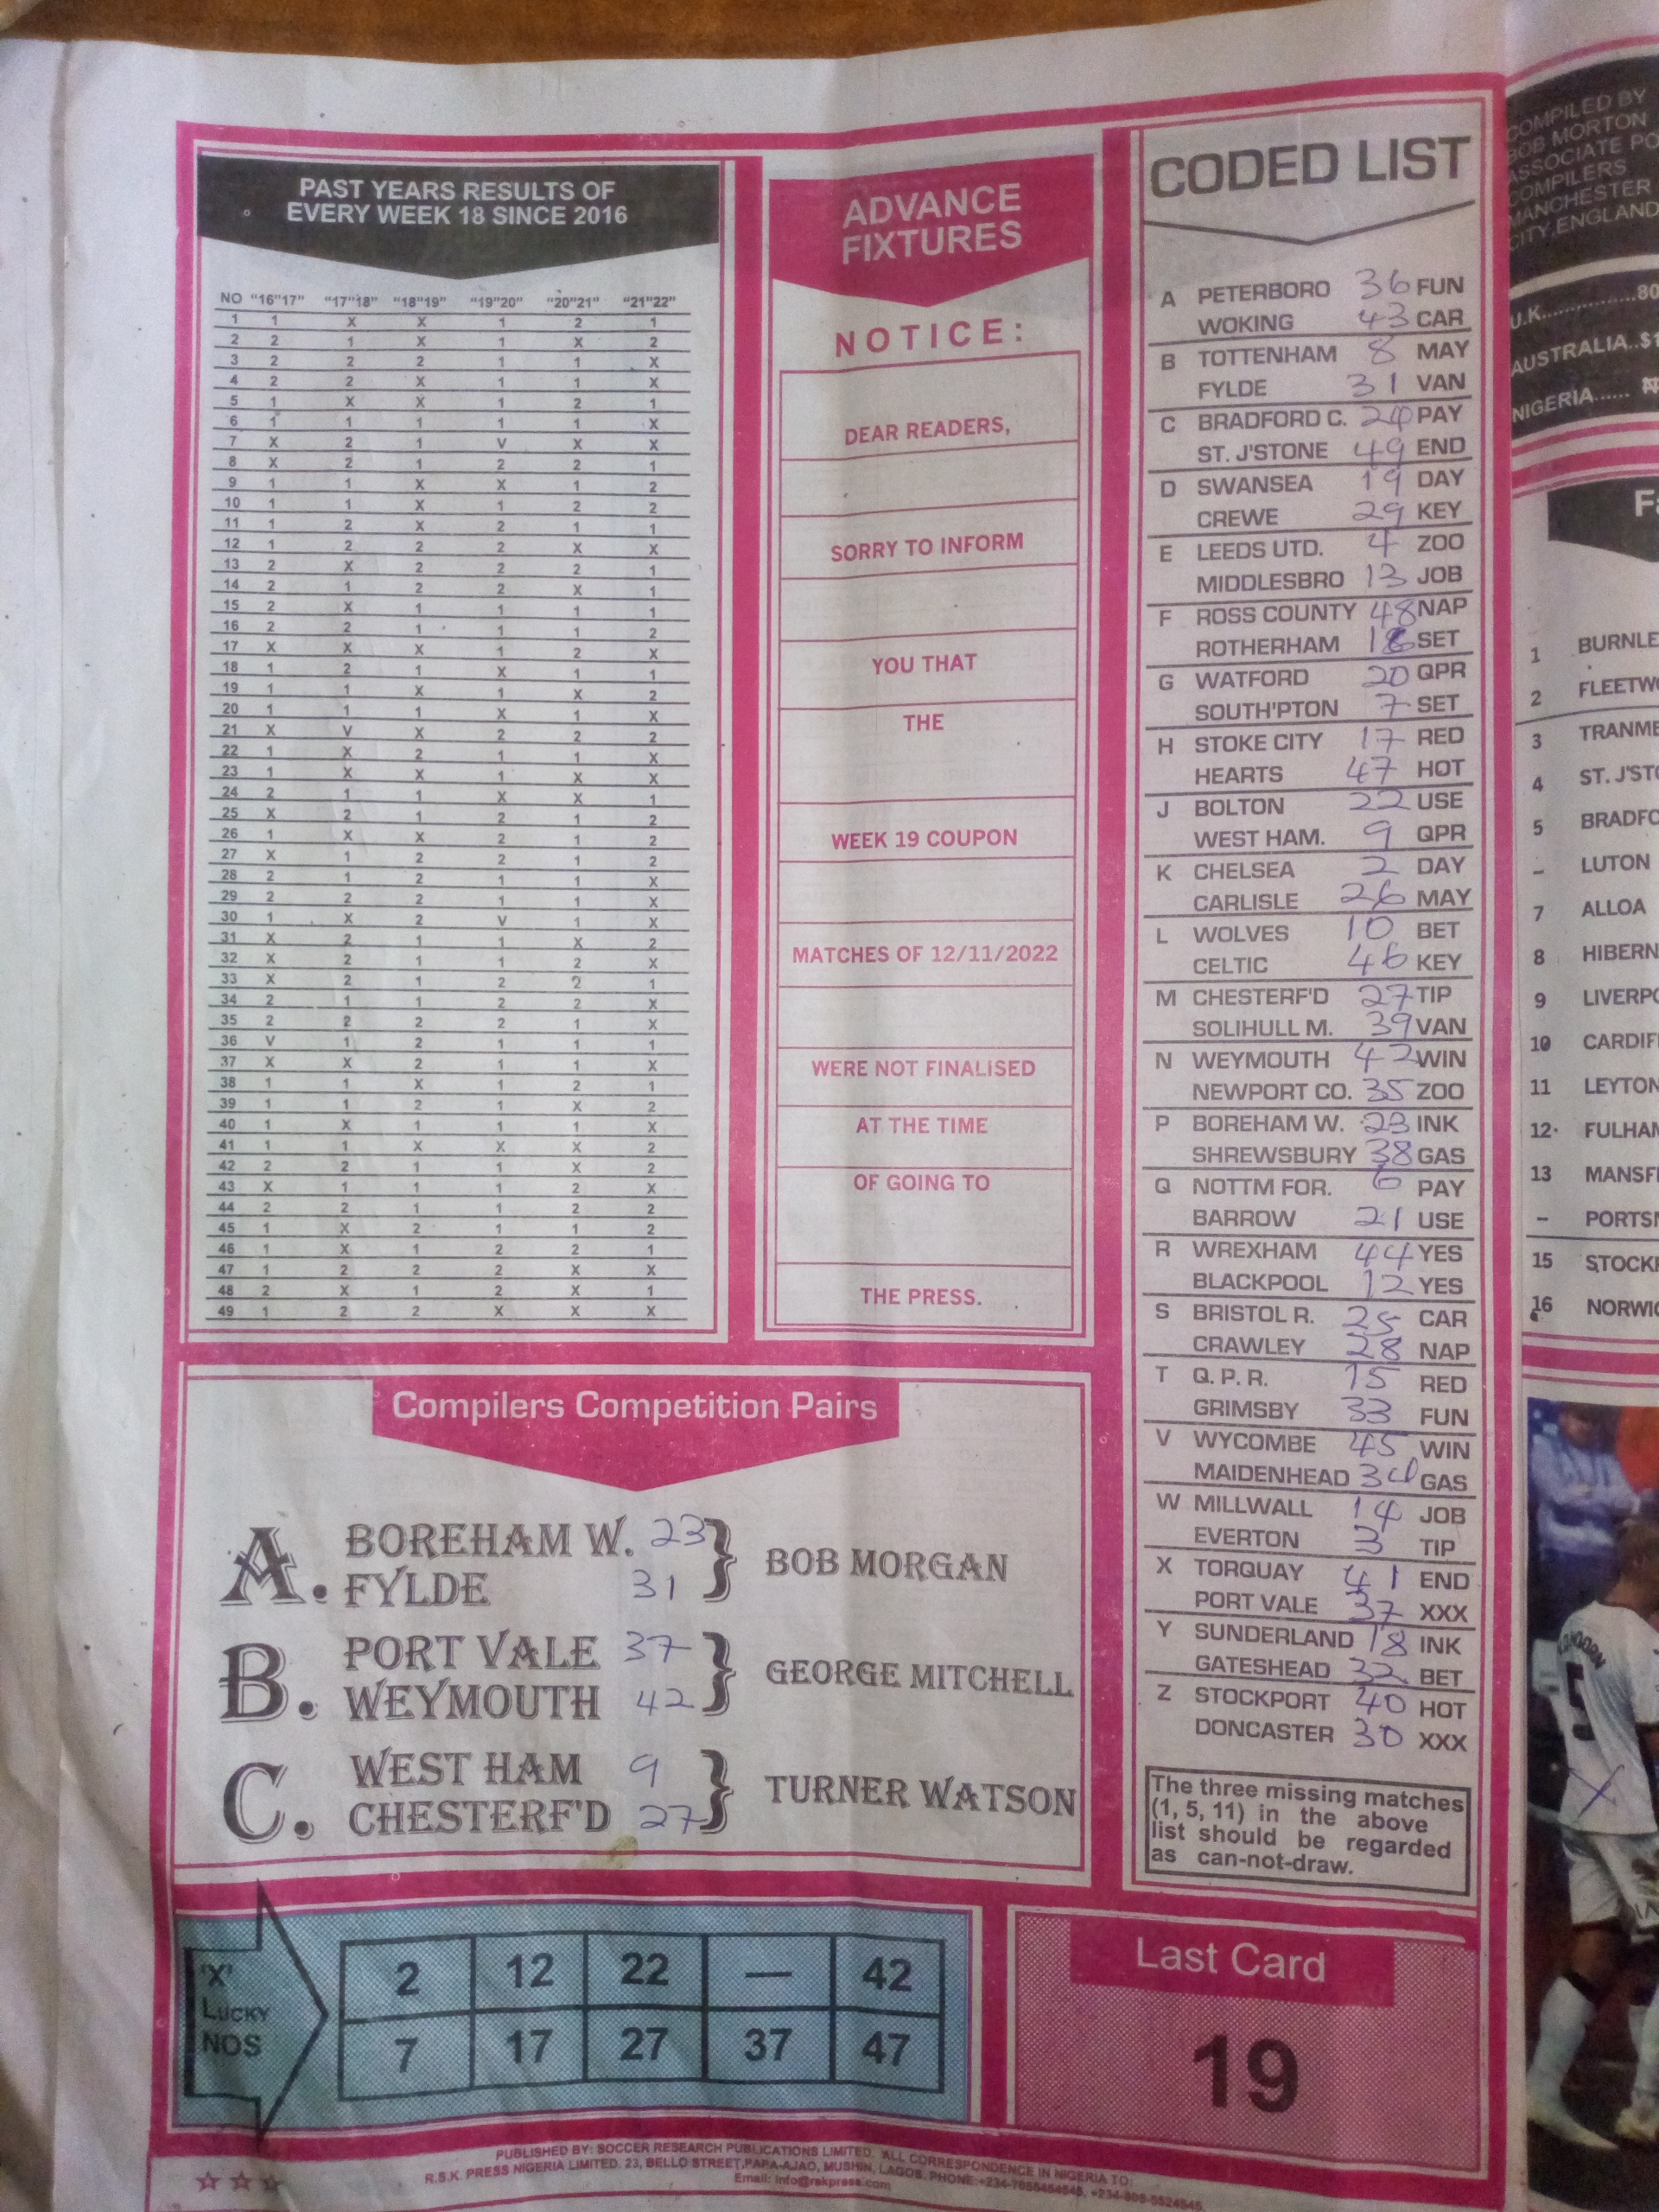 PAST YEARS RESULTS OF
EVERY WEEK 18 SINCE 2016
NO "16"17" "17"18" "18"19" "19"20" "20"21" "21"22"
1 1 X X 1 2 1
2 2 1 X 1 X 2
3 2 2 2 1 1 X
4 2 2 X 1 1 X
5 1 X X 1 2 1
6 1 1 1 1 1 X
7 X 2 1 V X X
8 X 2 1 2 2 1
9 1 1 X X 1 2
10 1 1 X 1 2 2
11 1 2 X 2 1 1
12 1 2 2 2 X X
13 2 X 2 2 2 1
14 2 1 2 2 X 1
15 2 X 1 1 1 1
16 2 2 1 1 1 2
17 X X X 1 2 X
18 1 2 1 X 1 1
19 1 1 X 1 X 2
20 1 1 1 X 1 X
21 X V X 2 2 2
22 1 X 2 1 1 X
23 1 X X 1 X X
24 2 1 1 X X 1
25 X 2 1 2 1 2
26 1 X X 2 1 2
27 X 1 2 2 1 2
28 2 1 2 1 1 X
29 2 2 2 1 1 X
30 1 X 2 V 1 X
31 X 2 1 1 X 2
32 X 2 1 1 2 X
33 X 2 1 2 2 1
34 2 1 1 2 2 X
35 2 2 2 2 1 X
36 V 1 2 1 1 1
37 X X 2 1 1 X
38 1 1 X 1 2 1
39 1 1 2 1 X 2
40 1 X 1 1 1 X
41 1 1 X X X 2
42 2 2 1 1 X 2
43 X 1 1 1 2 X
44 2 2 1 1 2 2
45 1 X 2 1 1 2
46 1 X 1 2 2 1
47 1 2 2 2 X X
48 2 X 1 2 X 1
49 1 2 2 X X X
ADVANCE
FIXTURES
NOTICE:
DEAR READERS,
SORRY TO INFORM
YOU THAT
THE
WEEK 19 COUPON
MATCHES OF 12/11/2022
WERE NOT FINALISED
AT THE TIME
OF GOING TO
THE PRESS.
CODED LIST
A PETERBORO 36 FUN
WOKING 43 CAR
B TOTTENHAM 8 MAY
FYLDE 31 VAN
C BRADFORD C. 24 PAY
ST. J'STONE 49 END
D SWANSEA 19 DAY
CREWE 29 KEY
E LEEDS UTD. 4 ZOO
MIDDLESBRO 13 JOB
F ROSS COUNTY 48 NAP
ROTHERHAM SET
G WATFORD 20 QPR
SOUTH'PTON 7 SET
H STOKE CITY 17 RED
HEARTS 47 HOT
J BOLTON 22 USE
WEST HAM. 9 QPR
K CHELSEA 2 DAY
CARLISLE 26 MAY
L WOLVES 10 BET
CELTIC 46 KEY
M CHESTERF'D 27 TIP
SOLIHULL M. 39 VAN
N WEYMOUTH 42 WIN
NEWPORT CO. 35 ZOO
P BOREHAM W. 23 INK
SHREWSBURY 38 GAS
Q NOTTM FOR. 6 PAY
BARROW 21 USE
R WREXHAM 44 YES
BLACKPOOL 12 YES
S BRISTOL R. 25 CAR
CRAWLEY 28 NAP
T Q. P. R. 15 RED
GRIMSBY 33 FUN
V WYCOMBE 45 WIN
MAIDENHEAD 34 GAS
W MILLWALL 14 JOB
EVERTON 3 TIP
X TORQUAY 41 END
PORT VALE 37 XXX
Y SUNDERLAND 18 INK
GATESHEAD 32 BET
Z STOCKPORT 40 HOT
DONCASTER 30 XXX
The three missing matches
(1, 5, 11) in the above
list should be regarded
as can-not-draw.
Compilers Competition Pairs
A. BOREHAM W. 23
FYLDE 31
BOB MORGAN
B. PORT VALE 37
WEYMOUTH 42
GEORGE MITCHELL
C. WEST HAM 9
CHESTERF'D 27
TURNER WATSON
'X'
LUCKY
NOS
2 12 22 — 42
7 17 27 37 47
Last Card
19
PUBLISHED BY: SOCCER RESEARCH PUBLICATIONS LIMITED. ALL CORRESPONDENCE IN NIGERIA TO:
R.S.K. PRESS NIGERIA LIMITED. 23, BELLO STREET, PAPA-AJAO, MUSHIN, LAGOS. PHONE:
Email: info@rskpress.com
COMPILED BY
BOB MORTON
ASSOCIATE PO
COMPILERS
MANCHESTER
CITY, ENGLAND
U.K...............80
AUSTRALIA..$1
NIGERIA......
1 BURNLE
2 FLEETW
3 TRANME
4 ST. J'STO
5 BRADFO
– LUTON
7 ALLOA
8 HIBERN
9 LIVERPO
10 CARDIF
11 LEYTON
12 FULHAM
13 MANSF
– PORTS
15 STOCK
16 NORWI
5